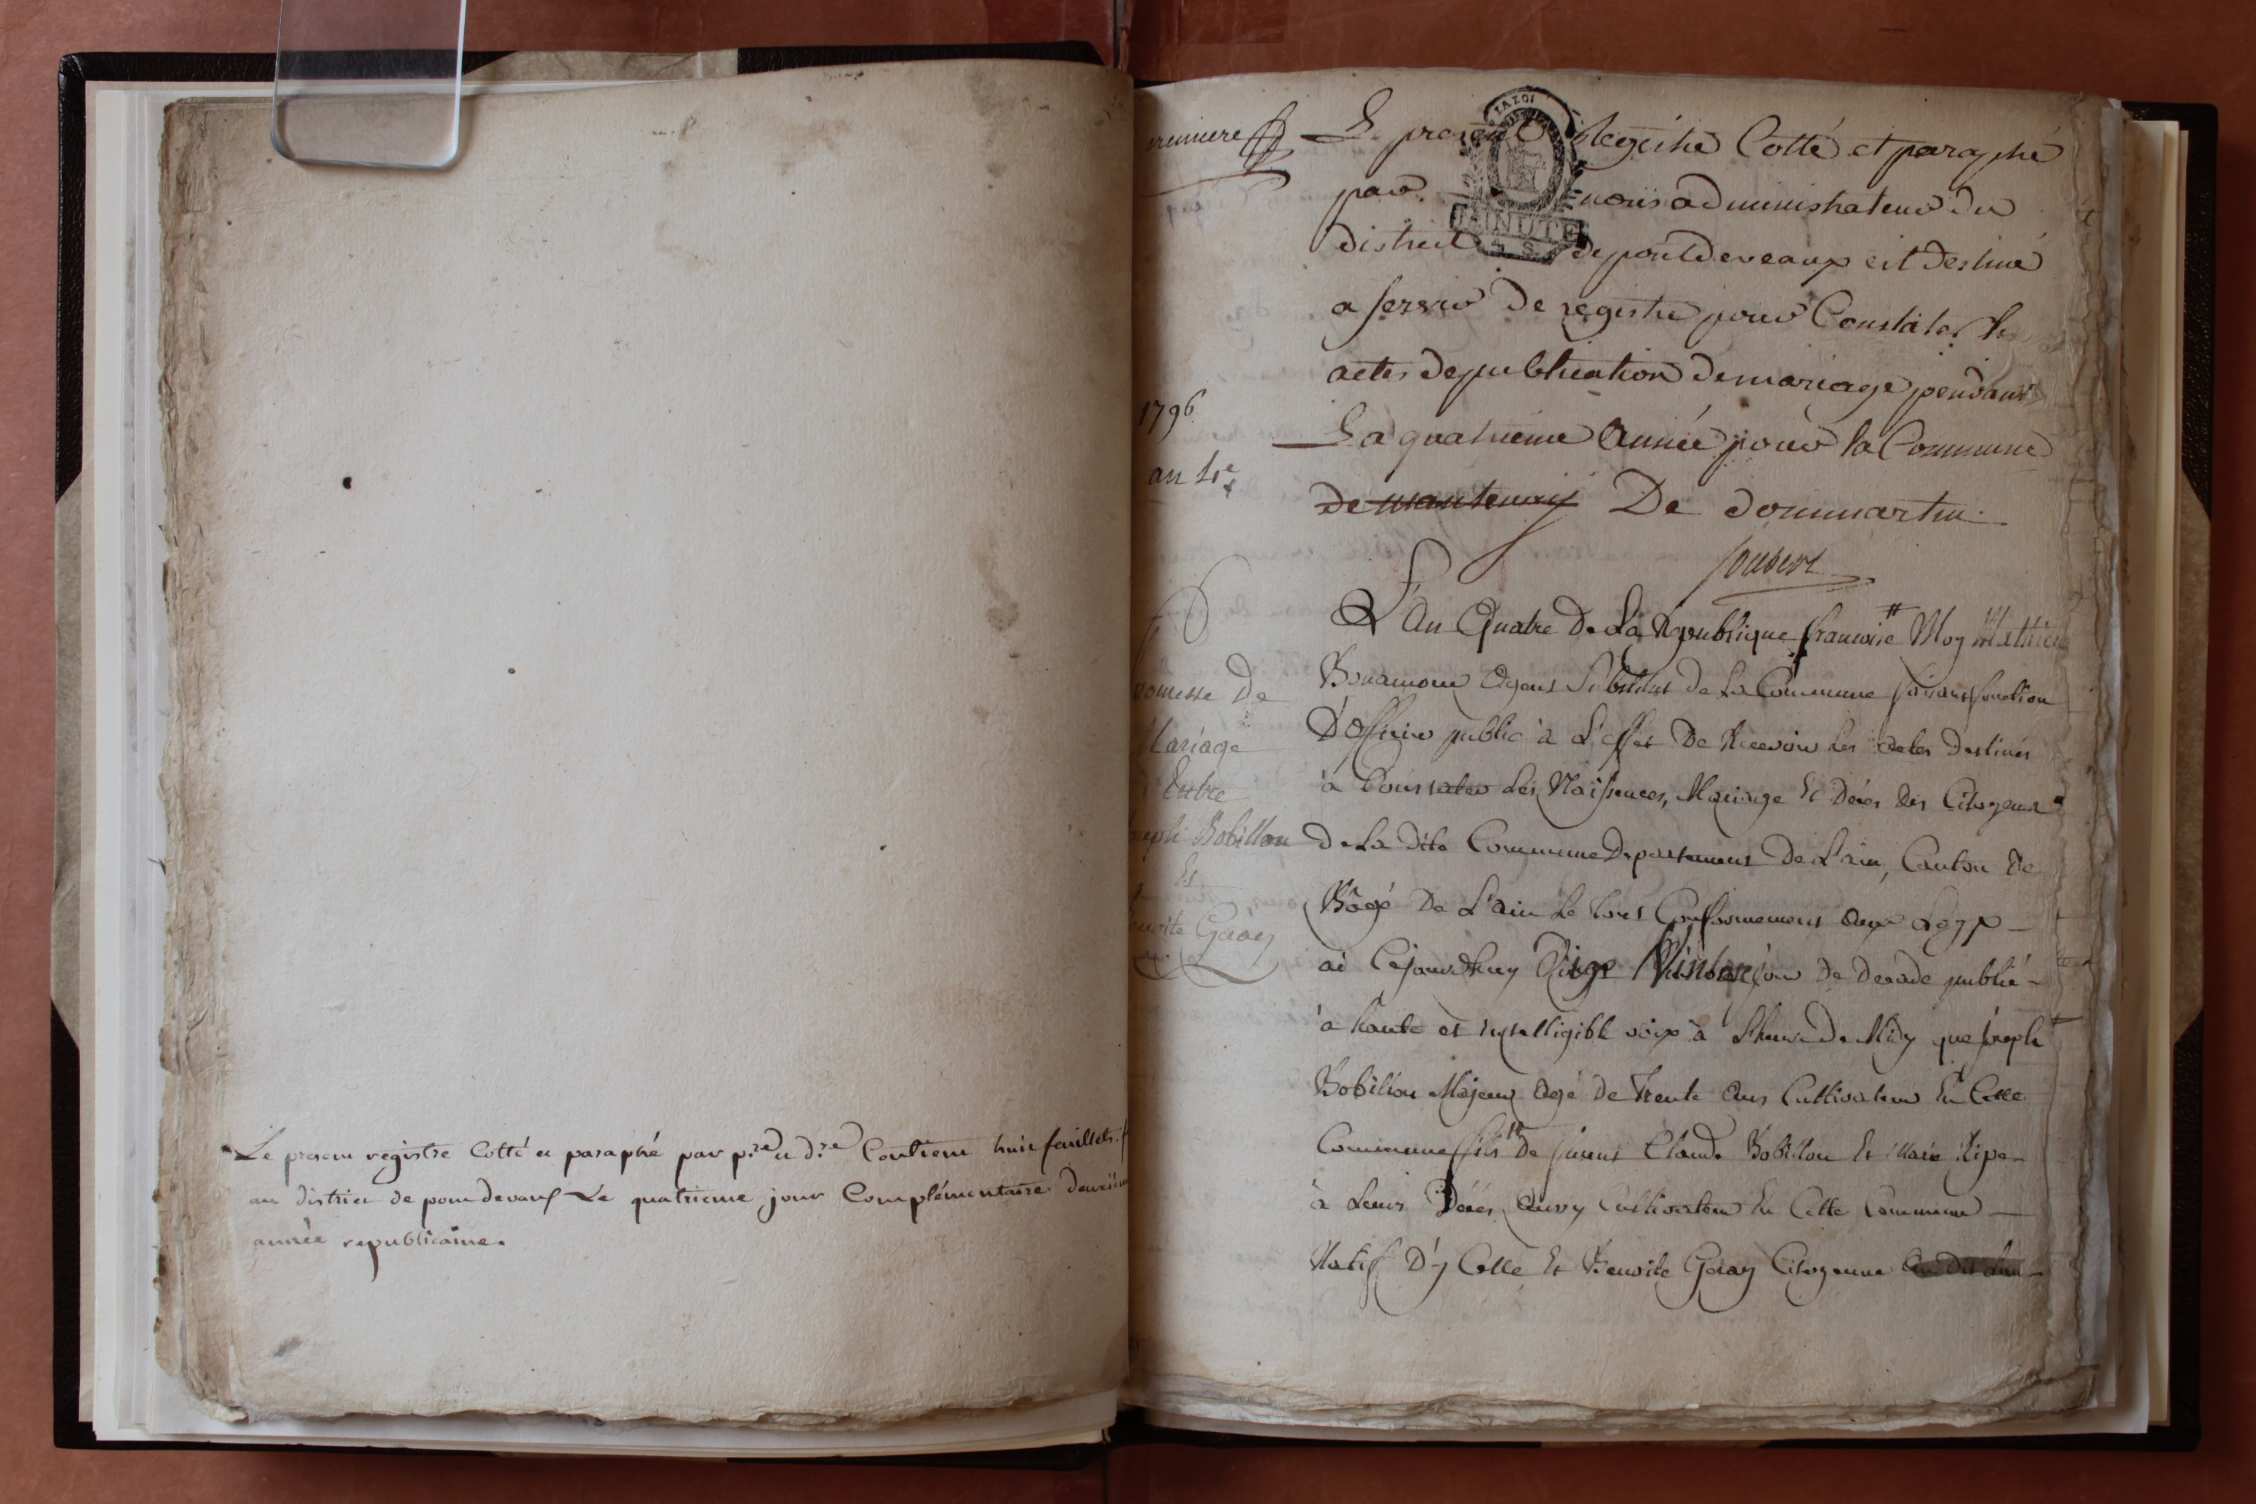 Le present registre Cotté et paraphé par p.re et d.re Contient huit feuillets
au district de pontdevaux Le quatrieme jour Complémentaire deuxiem
année republicaine.
premiere
Le present Registre Cotté et paraphé
par nous administrateur du
district de pontdevaux est destiné
a servir de registre pour Constater les
actes de publication de mariage pendant
La quatrieme année pour la Commune
de mantenay De dommartin.
Joubert
1796
an 4e
promesse De
Mariage
Entre
Joseph Bobillon
Et
Benoite Geay
L'An Quatre De La Republique francoise Moy Mathieu
Agent Substitut de La Commune faisant fonction
D'Officier public à L'effet De Recevoir Les actes destinés
à Constater Les Naissences, Mariage Et Décés Des Citoyens
De La dite Commune Departement De L'ain, Canton De
Bâgé De L'ain Le tout Conformement aux Loyx
ai Cejourdhuy jour De Decade publié
à haute et Intelligible voix à L'heure De Midy que Joseph
Bobillon Majeur agé De trente ans Cultivateur En Cette
Commune fils De furent Claude Bobillon Et Marie
à Leurs Décés Cultivateur En Cette Commune
Natif D'y Celle Et Benoite Geay Citoyenne
MINUTE
LA LOI